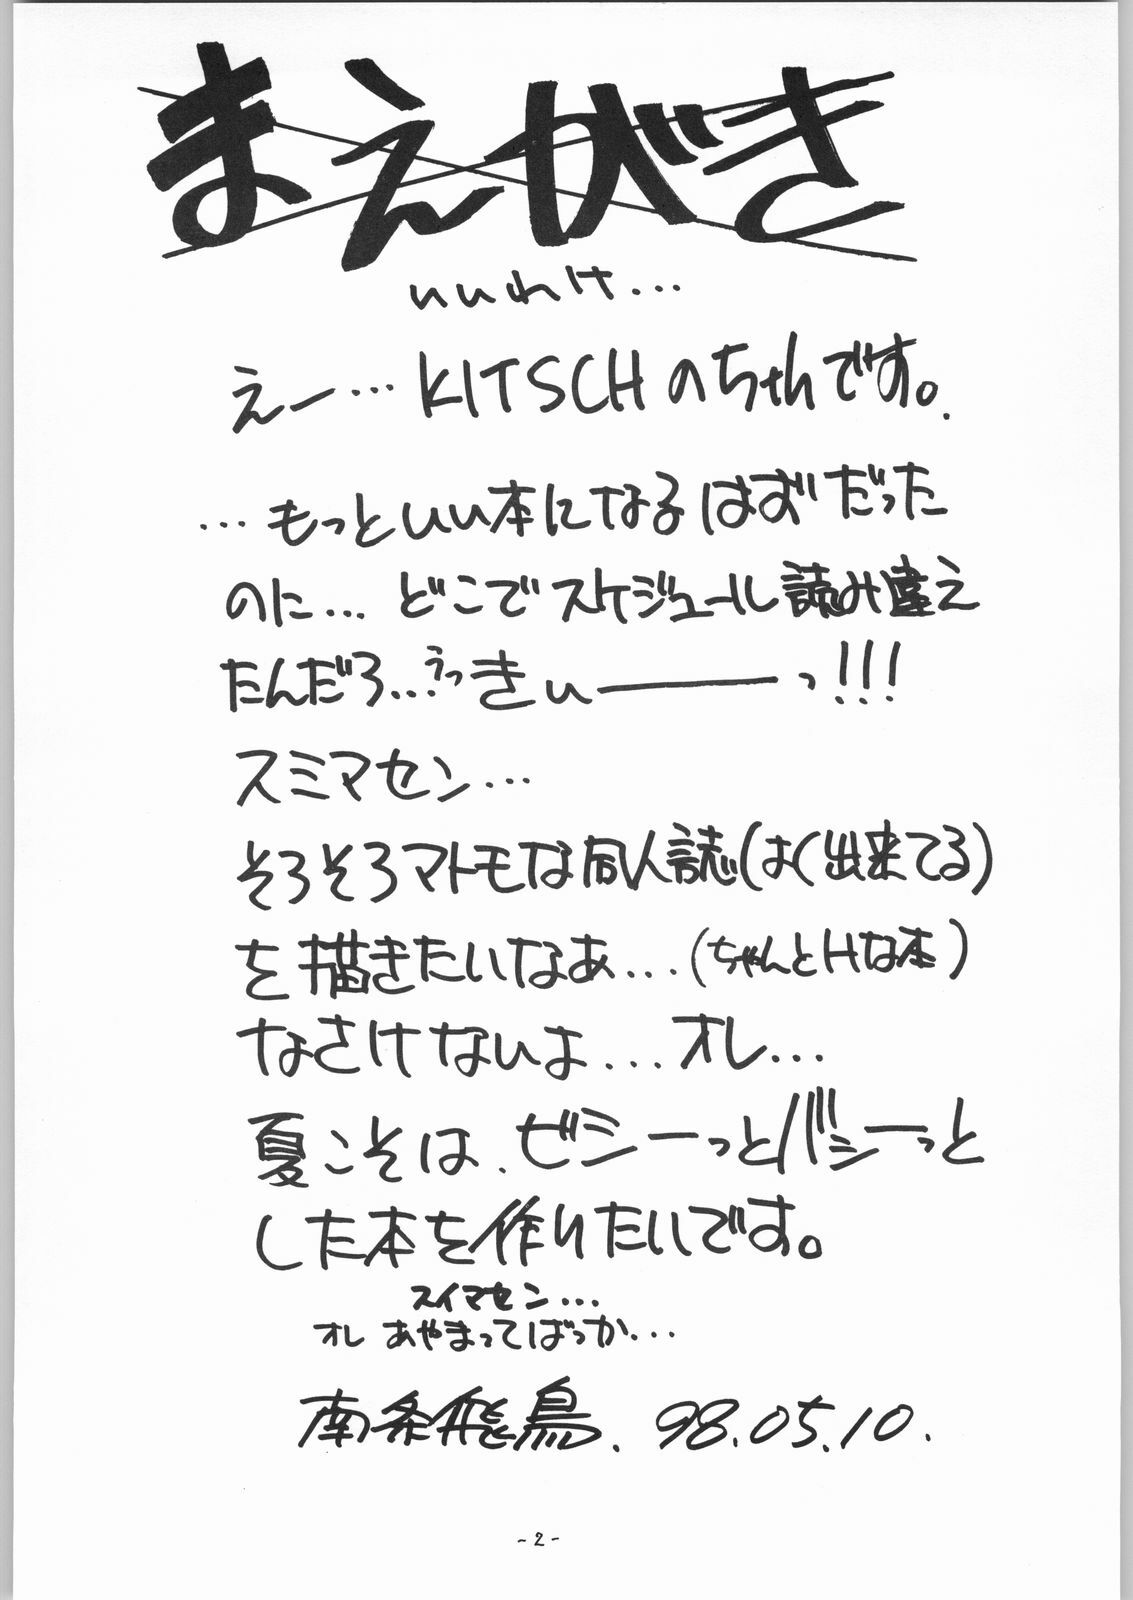 まえがき
いいわけ...
えー…KITSCHのちゃんです。
…もっといい本になるはずだった
のに…どこでスケジュール読み違え
たんだろ...うっきぃーーっ!!!
スミマセン…
そろそろマトモな同人誌(よく出来てる)
を描きたいなあ...(ちゃんとHな本)
なさけないよ...オレ...
夏こそは、ビシーっとバシーっと
した本を作りたいです。
スイマセン...
オレ あやまってばっか...
南条飛鳥. 98.05.10.
-2-